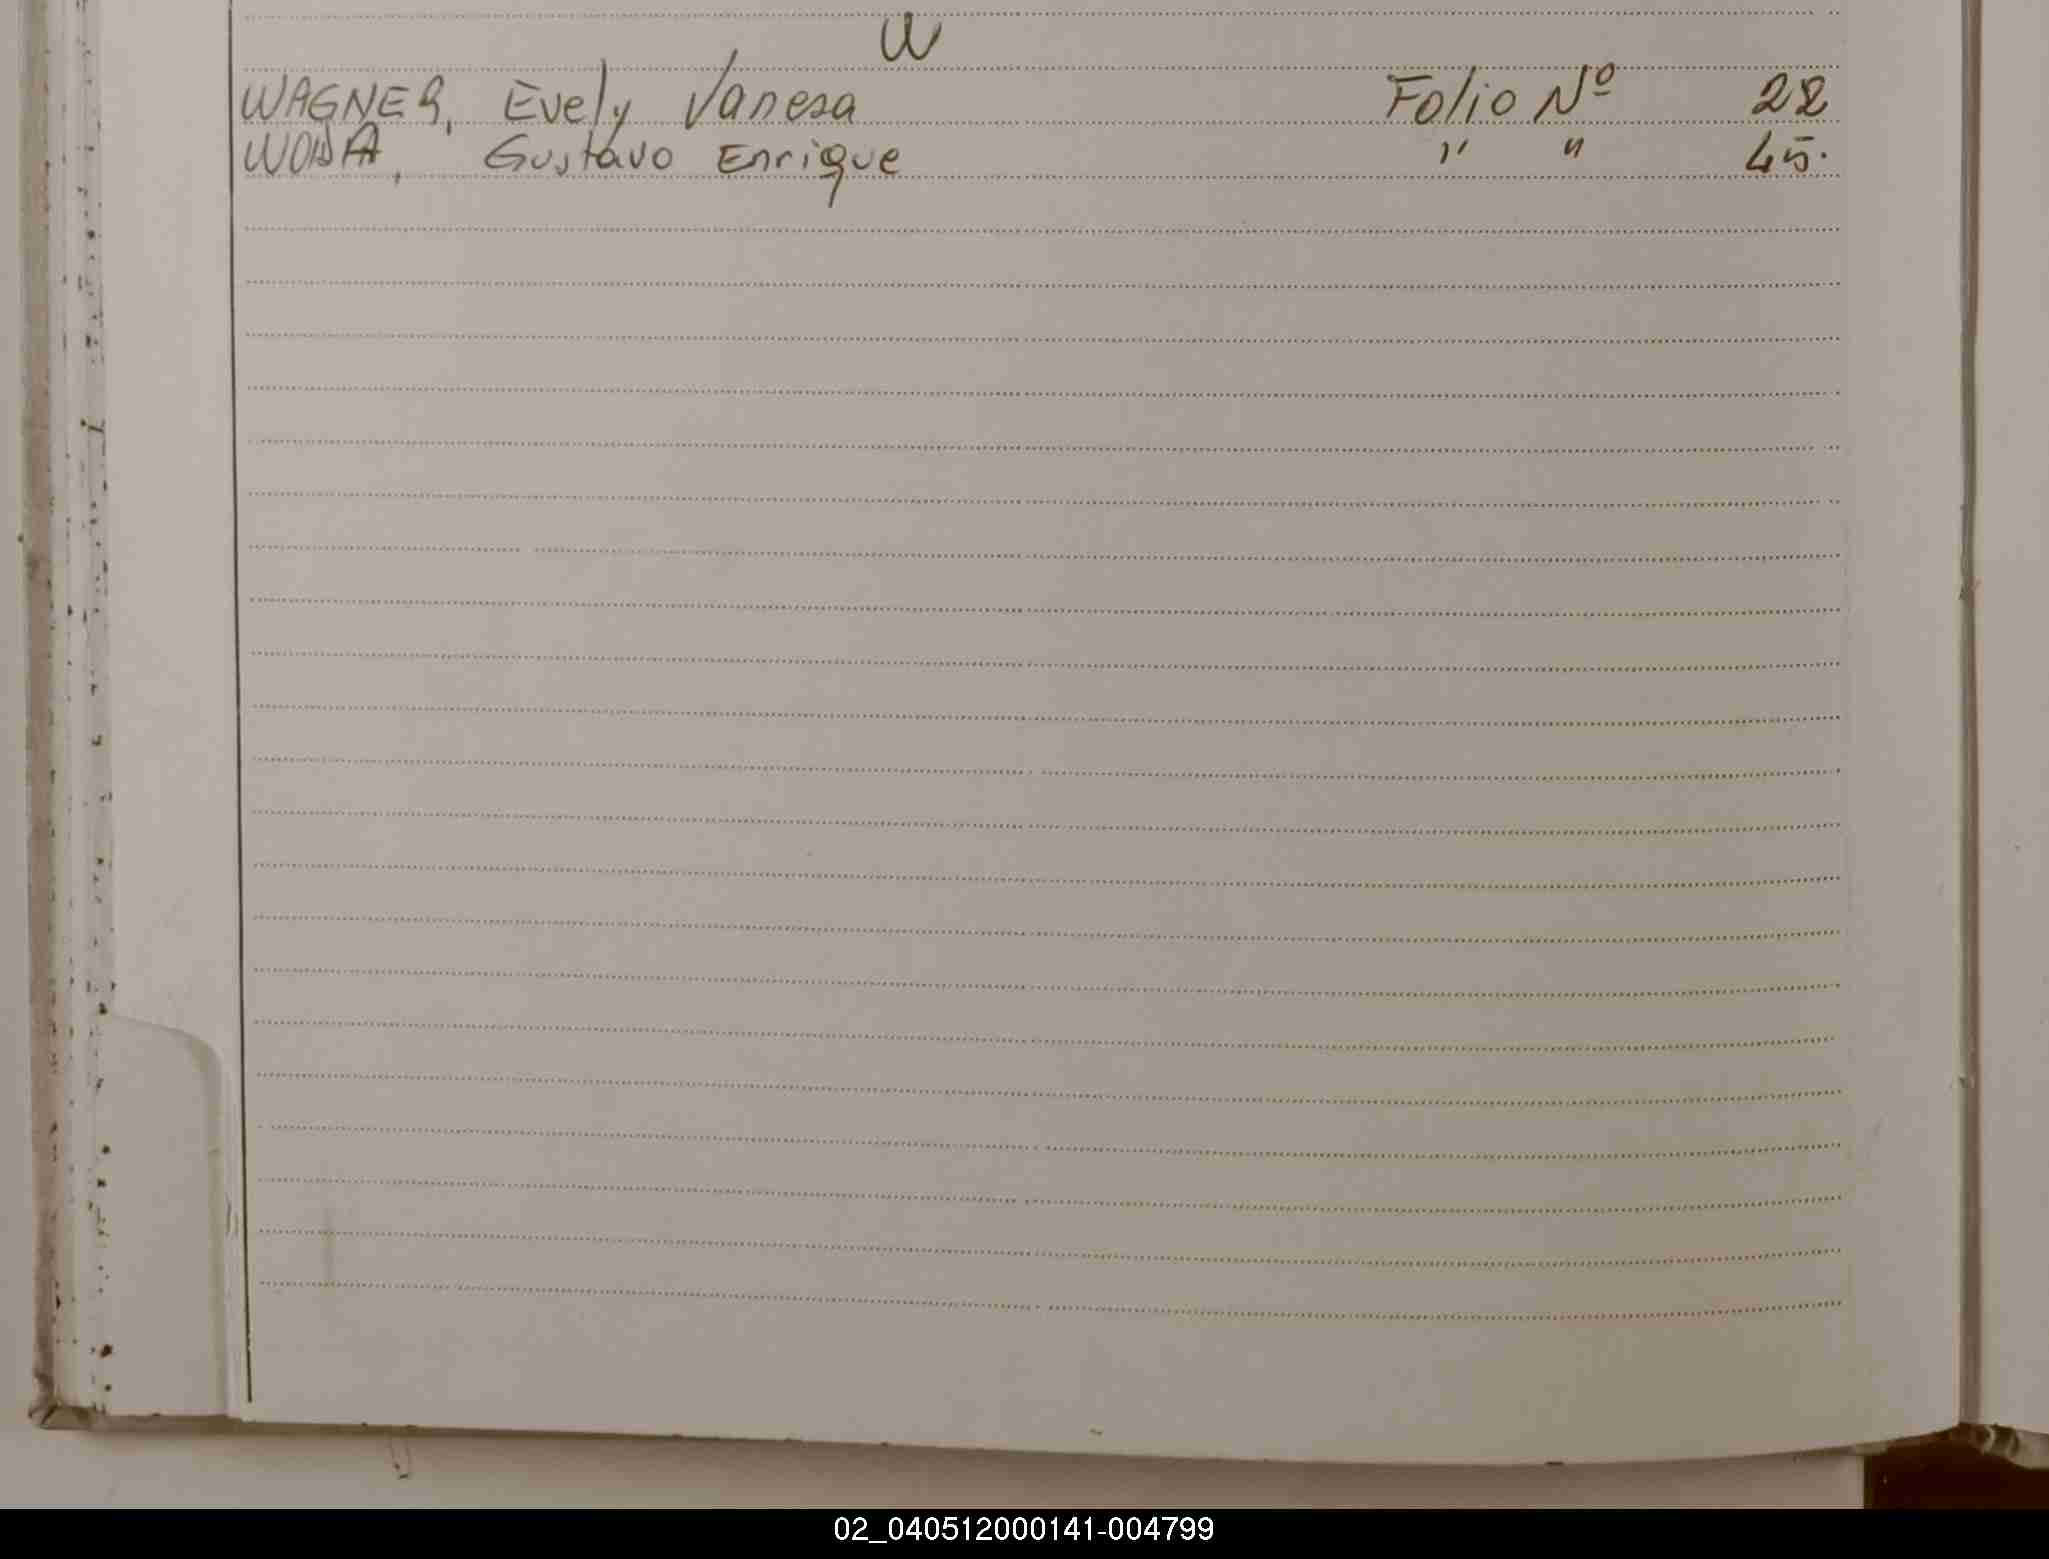 W
WAGNER, Evely Vanesa Folio Nº 22
Gustavo Enrique " " 45.
02_040512000141-004799